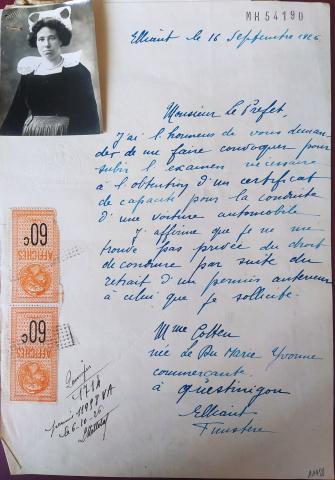 MH54190
Elliant le 16 Septembre 1926
Monsieur le Préfet,
J'ai l'honneur de vous deman
der de me faire convoquer pour
subir l'examen nécessaire
à l'obtention d'un certificat
de capacité pour la conduite
d'une voiture automobile.
J'affirme que je ne me
trouve pas privée du droit
de conduire par suite du
retrait d'un permis antérieur
à celui que je sollicite.
Mme Cotten
née Le Du Marie Yvonne
commerçante
à Questinigou
Elliant
Finistère
60c
AFFICHES
60c
AFFICHES
permis 11987 VA
le 6-10-26